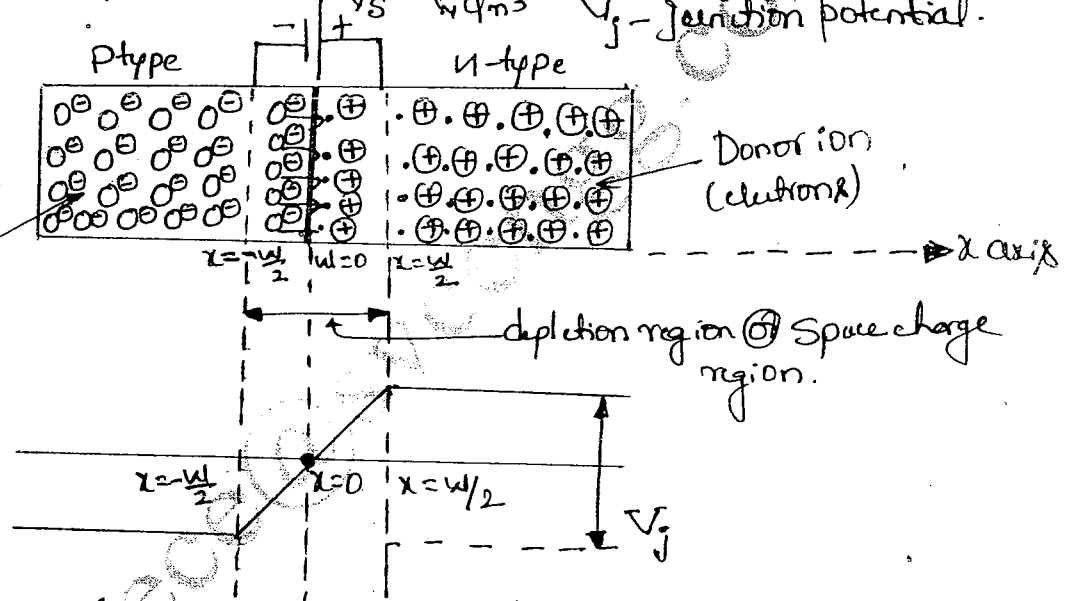 VS  C/m³  Vj - Junction potential.
- +
P type
n-type
Donor ion
(elutrons)
x=-W/2  W=0  x=W/2
x axis
depletion region or Space charge
region.
x=-W/2  x=0  x=W/2
Vj